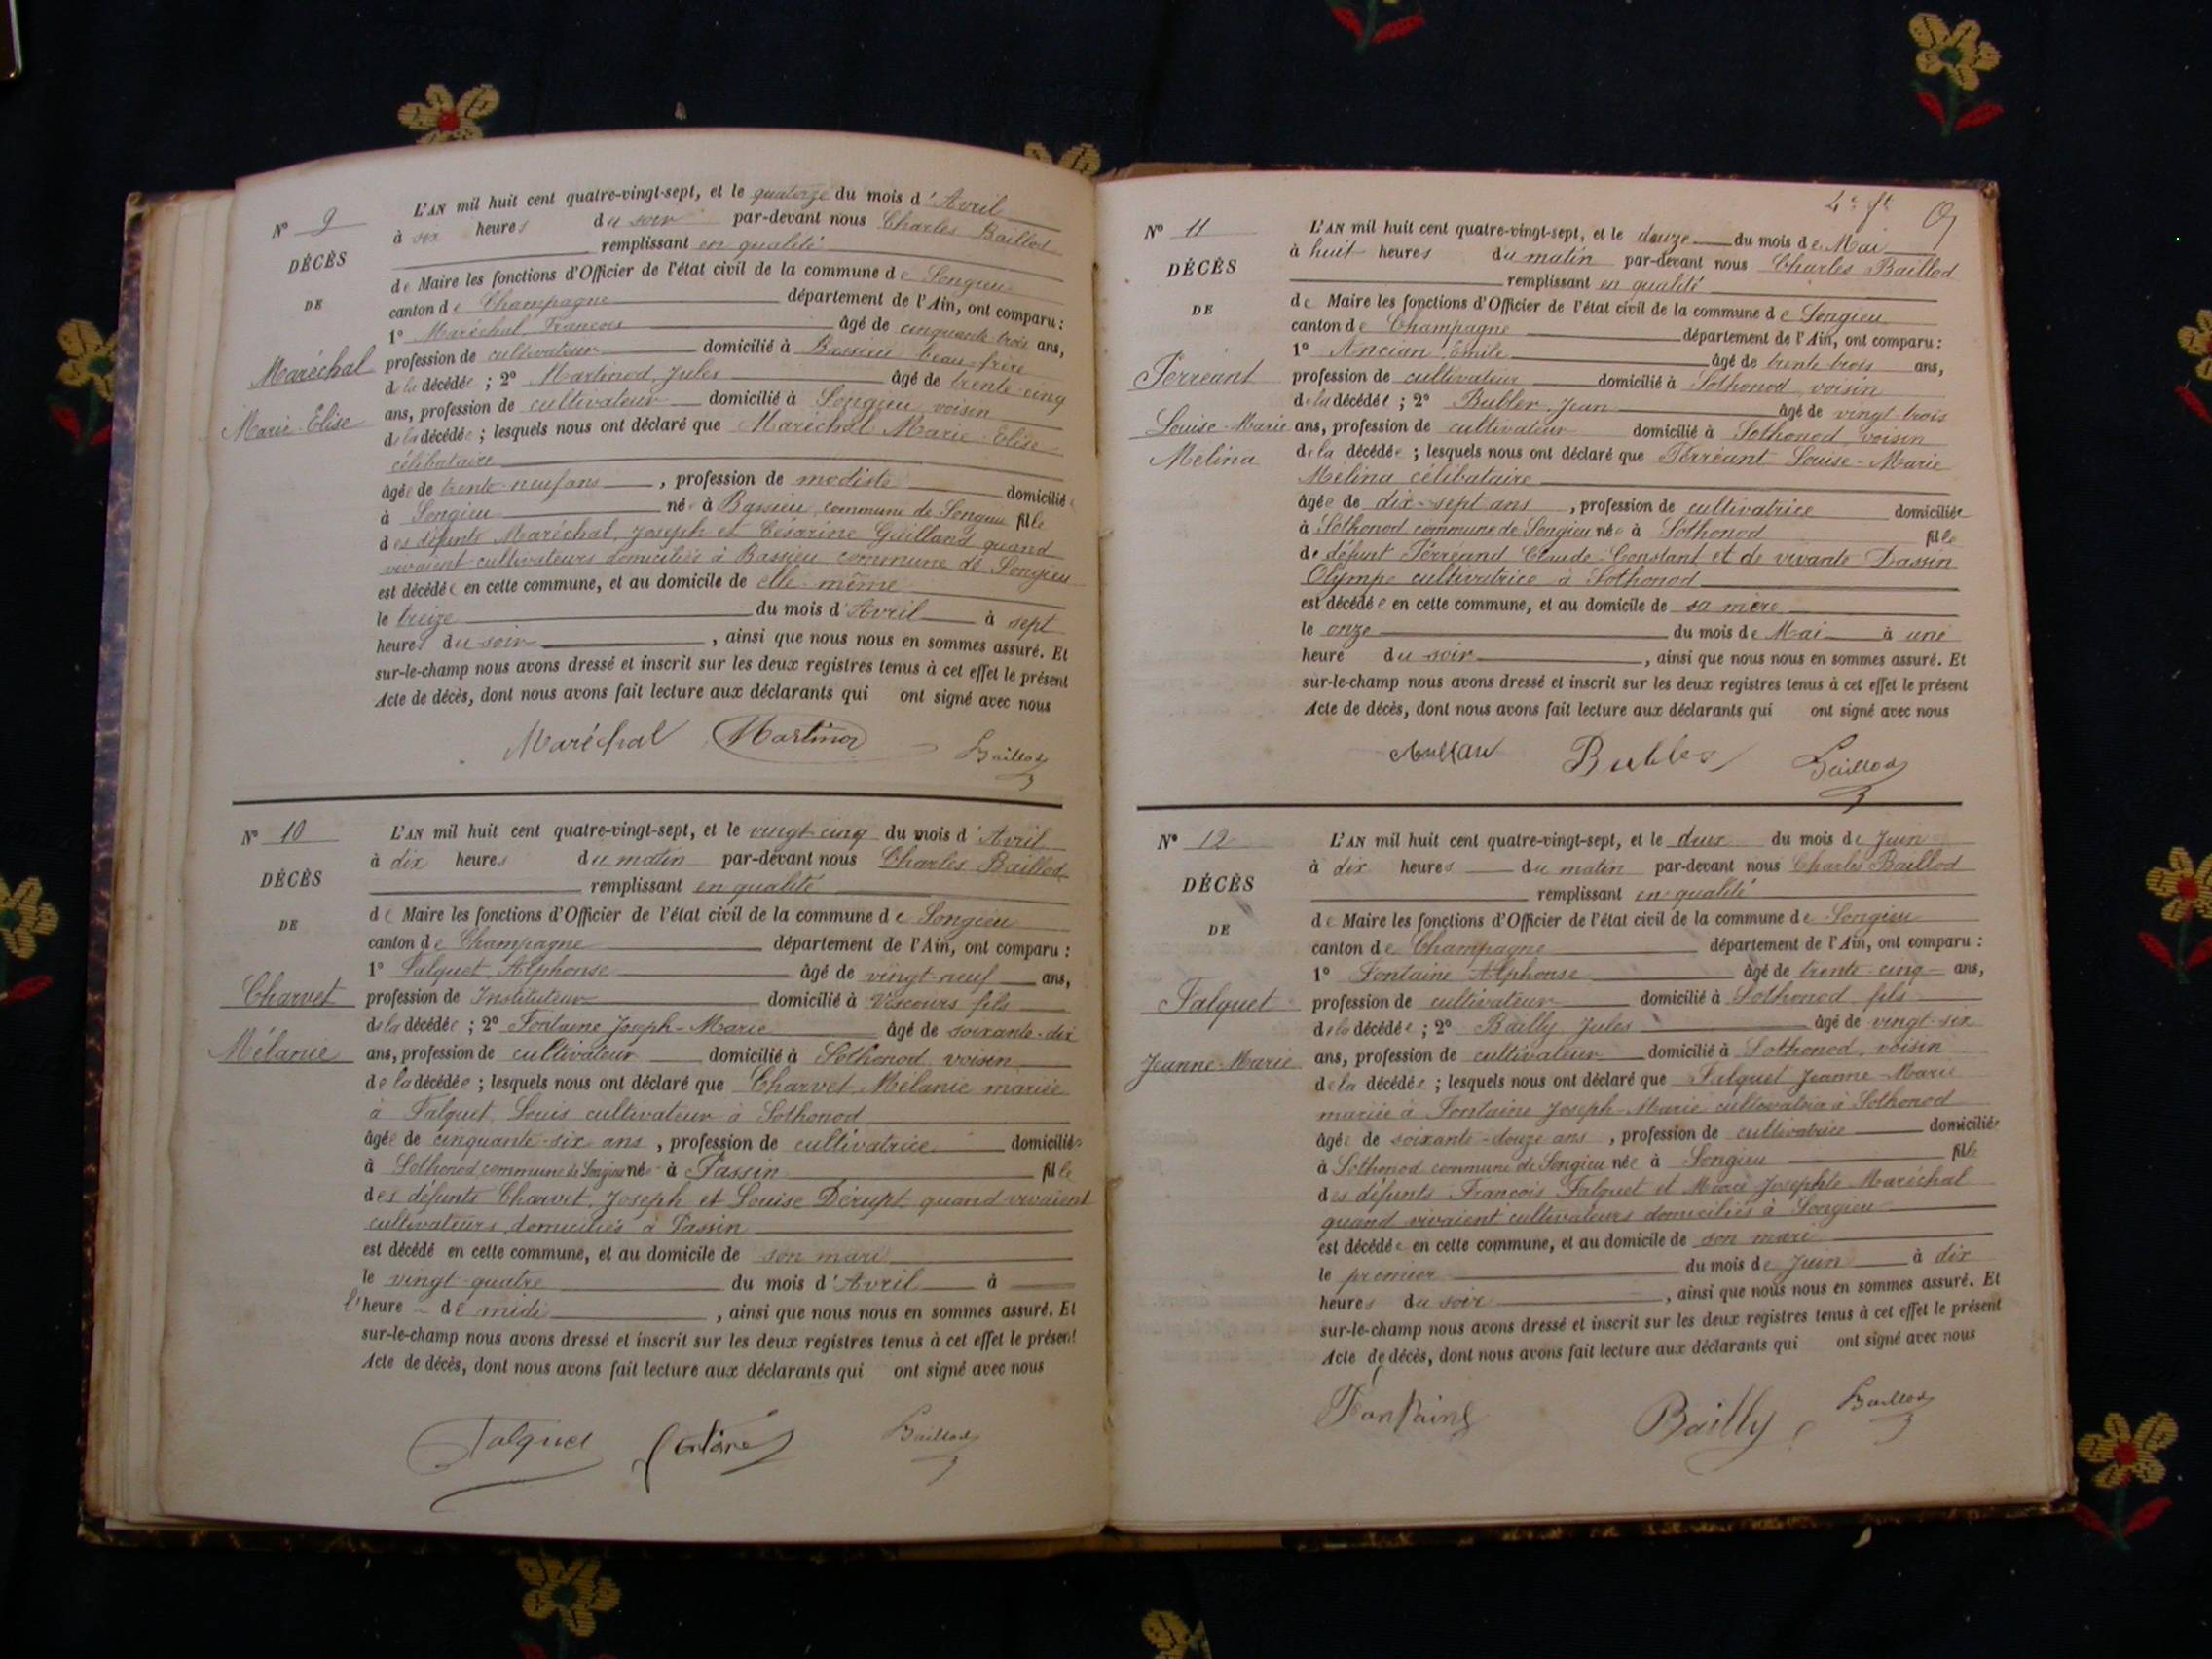 N° 9
DÉCÈS
DE
Maréchal
Marie-Elise
L'AN mil huit cent quatre-vingt-sept, et le quatorze du mois d'Avril
à six heures du soir par-devant nous Charles Baillod
remplissant en qualité
de Maire les fonctions d'Officier de l'état civil de la commune de Songieu
canton de Champagne département de l'Ain, ont comparu :
1° Maréchal François âgé de cinquante-trois ans,
profession de cultivateur domicilié à Bassieu beau-frère
de la décédée ; 2° Martinod Jules âgé de trente-cinq
ans, profession de cultivateur domicilié à Songieu voisin
de la décédée ; lesquels nous ont déclaré que Maréchal Marie-Elise
célibataire
âgée de trente-neuf ans, profession de modiste domiciliée
à Songieu née à Bassieu, commune de Songieu fille
des défunts Maréchal, Joseph et Césarine Guilland quand
vivaient cultivateurs domiciliés à Bassieu commune de Songieu
est décédée en cette commune, et au domicile de elle-même
le treize du mois d'Avril à sept
heures du soir, ainsi que nous nous en sommes assuré. Et
sur-le-champ nous avons dressé et inscrit sur les deux registres tenus à cet effet le présent
Acte de décès, dont nous avons fait lecture aux déclarants qui ont signé avec nous
Maréchal Martinod Baillod
N° 10
DÉCÈS
DE
Charvet
Mélanie
L'AN mil huit cent quatre-vingt-sept, et le vingt-cinq du mois d'Avril
à dix heures du matin par-devant nous Charles Baillod
remplissant en qualité
de Maire les fonctions d'Officier de l'état civil de la commune de Songieu
canton de Champagne département de l'Ain, ont comparu :
1° Falquet, Alphonse âgé de vingt-neuf ans,
profession de Instituteur domicilié à fils
de la décédée ; 2° Fontaine Joseph-Marie âgé de soixante-dix
ans, profession de cultivateur domicilié à Sothonod voisin
de la décédée ; lesquels nous ont déclaré que Charvet Mélanie mariée
à Falquet, Louis cultivateur à Sothonod
âgée de cinquante-six ans, profession de cultivatrice domiciliée
à Sothonod, commune de Songieu née à Passin fille
des défunts Charvet, Joseph et Louise Dérupt quand vivaient
cultivateurs domiciliés à Passin
est décédé en cette commune, et au domicile de son mari
le vingt-quatre du mois d'Avril à
l'heure de midi, ainsi que nous nous en sommes assuré. Et
sur-le-champ nous avons dressé et inscrit sur les deux registres tenus à cet effet le présent
Acte de décès, dont nous avons fait lecture aux déclarants qui ont signé avec nous
Falquet Baillod
N° 11
DÉCÈS
DE
Ferréant
Louise-Marie
Mélina
L'AN mil huit cent quatre-vingt-sept, et le douze du mois de Mai
à huit heures du matin par-devant nous Charles Baillod
remplissant en qualité
de Maire les fonctions d'Officier de l'état civil de la commune de Songieu
canton de Champagne département de l'Ain, ont comparu :
1° Ancian, Emile âgé de trente-trois ans,
profession de cultivateur domicilié à Sothonod, voisin
de la décédée ; 2° Jean âgé de vingt-trois
ans, profession de cultivateur domicilié à Sothonod, voisin
de la décédée ; lesquels nous ont déclaré que Ferréant Louise-Marie
Mélina célibataire
âgée de dix-sept ans, profession de cultivatrice domiciliée
à Sothonod commune de Songieu née à Sothonod fille
de défunt Ferréand Claude-Constant et de vivante Dassin
Olympe cultivatrice à Sothonod
est décédée en cette commune, et au domicile de sa mère
le onze du mois de Mai à une
heure du soir, ainsi que nous nous en sommes assuré. Et
sur-le-champ nous avons dressé et inscrit sur les deux registres tenus à cet effet le présent
Acte de décès, dont nous avons fait lecture aux déclarants qui ont signé avec nous
Baillod
N° 12
DÉCÈS
DE
Falquet
Jeanne-Marie
L'AN mil huit cent quatre-vingt-sept, et le deux du mois de Juin
à dix heures du matin par-devant nous Charles Baillod
remplissant en qualité
de Maire les fonctions d'Officier de l'état civil de la commune de Songieu
canton de Champagne département de l'Ain, ont comparu :
1° Fontaine Alphonse âgé de trente-cinq ans,
profession de cultivateur domicilié à Sothonod fils
de la décédée ; 2° Bailly Jules âgé de vingt-six
ans, profession de cultivateur domicilié à Sothonod, voisin
de la décédée ; lesquels nous ont déclaré que Falquet Jeanne-Marie
mariée à Fontaine Joseph-Marie cultivateur à Sothonod
âgée de soixante-douze ans, profession de cultivatrice domiciliée
à Sothonod commune de Songieu née à Songieu fille
des défunts François Falquet et Marie Josephte Maréchal
quand vivaient cultivateurs domiciliés à Songieu
est décédée en cette commune, et au domicile de son mari
le premier du mois de Juin à dix
heures du soir, ainsi que nous nous en sommes assuré. Et
sur-le-champ nous avons dressé et inscrit sur les deux registres tenus à cet effet le présent
Acte de décès, dont nous avons fait lecture aux déclarants qui ont signé avec nous
Fontaine Bailly Baillod